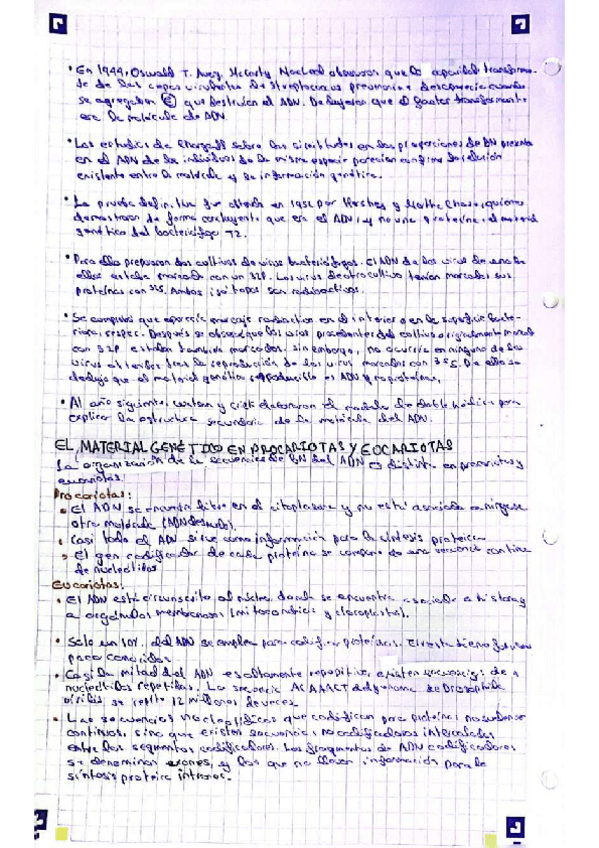 • En 1944, Oswald T. Avery, McCarty MacLeod observaron que la capacidad transforma-
te de las cepas virulentas de Streptococcus pneumoniae desaparecía cuando
se agregaban (E) que destruían el ADN. Dedujeron que el factor transformante
era la molécula de ADN.
• Los estudios de Chargaff sobre las similitudes en las proporciones de BN presente
en el ADN de los individuos de la misma especie parecían confirmar la relación
existente entre la molécula y la información genética.
• La prueba definitiva fue obtenida en 1952 por Hershey y Martha Chase, quienes
demostraron de forma concluyente que era el ADN, y no una proteína, el material
genético del bacteriófago T2.
• Para ello prepararon dos cultivos de virus bacteriófagos. El ADN de los virus de uno de
ellos estaba marcado con un 32P. Los virus de otro cultivo tenían marcadas sus
proteínas con 35S. Ambos isótopos son radioactivos.
• Se comprobó que aparecía marcaje radioactivo en el interior y en la superficie bacte-
riana, respec. Después se observó que los virus procedentes del cultivo originalmente marcado
con 32P estaban también marcados. sin embargo, no ocurría en ninguno de los
virus obtenidos tras la reproducción de los virus marcados con 35S. De ello se
dedujo que el material genético reproducible es ADN y no proteínas.
• Al año siguiente, Watson y Crick elaboraron el modelo de doble hélice para
explicar la estructura secundaria de la molécula del ADN.
EL MATERIAL GENÉTICO EN PROCARIOTAS Y EUCARIOTAS
La organización de la secuencia de BN del ADN es distinta en procariotas y
eucariotas.
Procariotas:
• El ADN se encuentra libre en el citoplasma y no está asociado a ninguna
otra molécula (ADN desnudo).
• Casi todo el ADN sirve como información para la síntesis proteica
• El gen codificador de cada proteína se compone de una secuencia continua
de nucleótidos
Eucariotas:
• El ADN está circunscrito al núcleo, donde se encuentra asociado a histonas y
a orgánulos membranosos (mitocondrias y cloroplastos).
• Solo un 10% del ADN se emplea para codificar proteínas. El resto tiene funciones
poco conocidas
• Casi la mitad del ADN es altamente repetitivo, existen secuencias de
nucleótidos repetidas. La secuencia ACAAACT del genoma de Drosophila
virilis se repite 12 millones de veces
• Las secuencias nucleotídicas que codifican para proteínas no suelen ser
continuas, sino que existen secuencias no codificadoras intercaladas
entre los segmentos codificadores. Los fragmentos de ADN codificadores
se denominan exones, y los que no llevan información para la
síntesis proteica intrones.